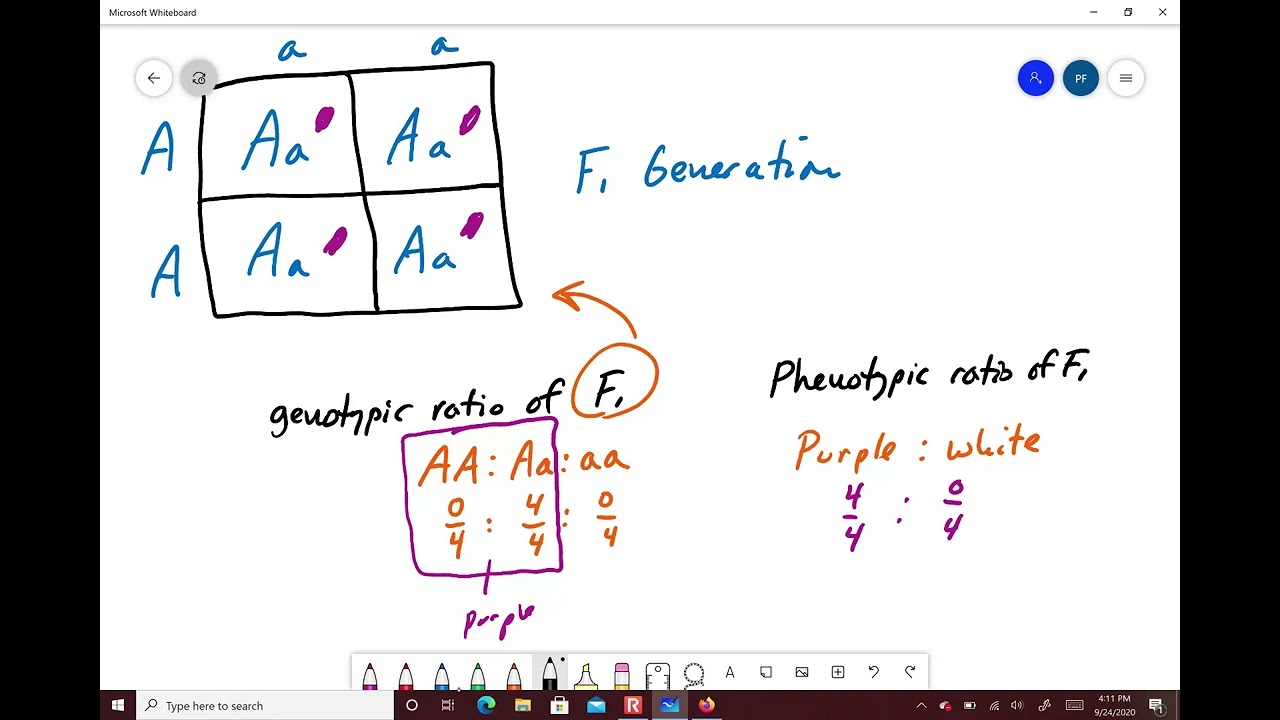 Microsoft Whiteboard
a a
PF
A Aa Aa
F₁ Generation
A Aa Aa
genotypic ratio of F₁
Phenotypic ratio of F₁
AA : Aa : aa
Purple : white
0/4 : 4/4 : 0/4
4/4 : 0/4
Purple
A
Type here to search
R
4:11 PM
9/24/2020
1